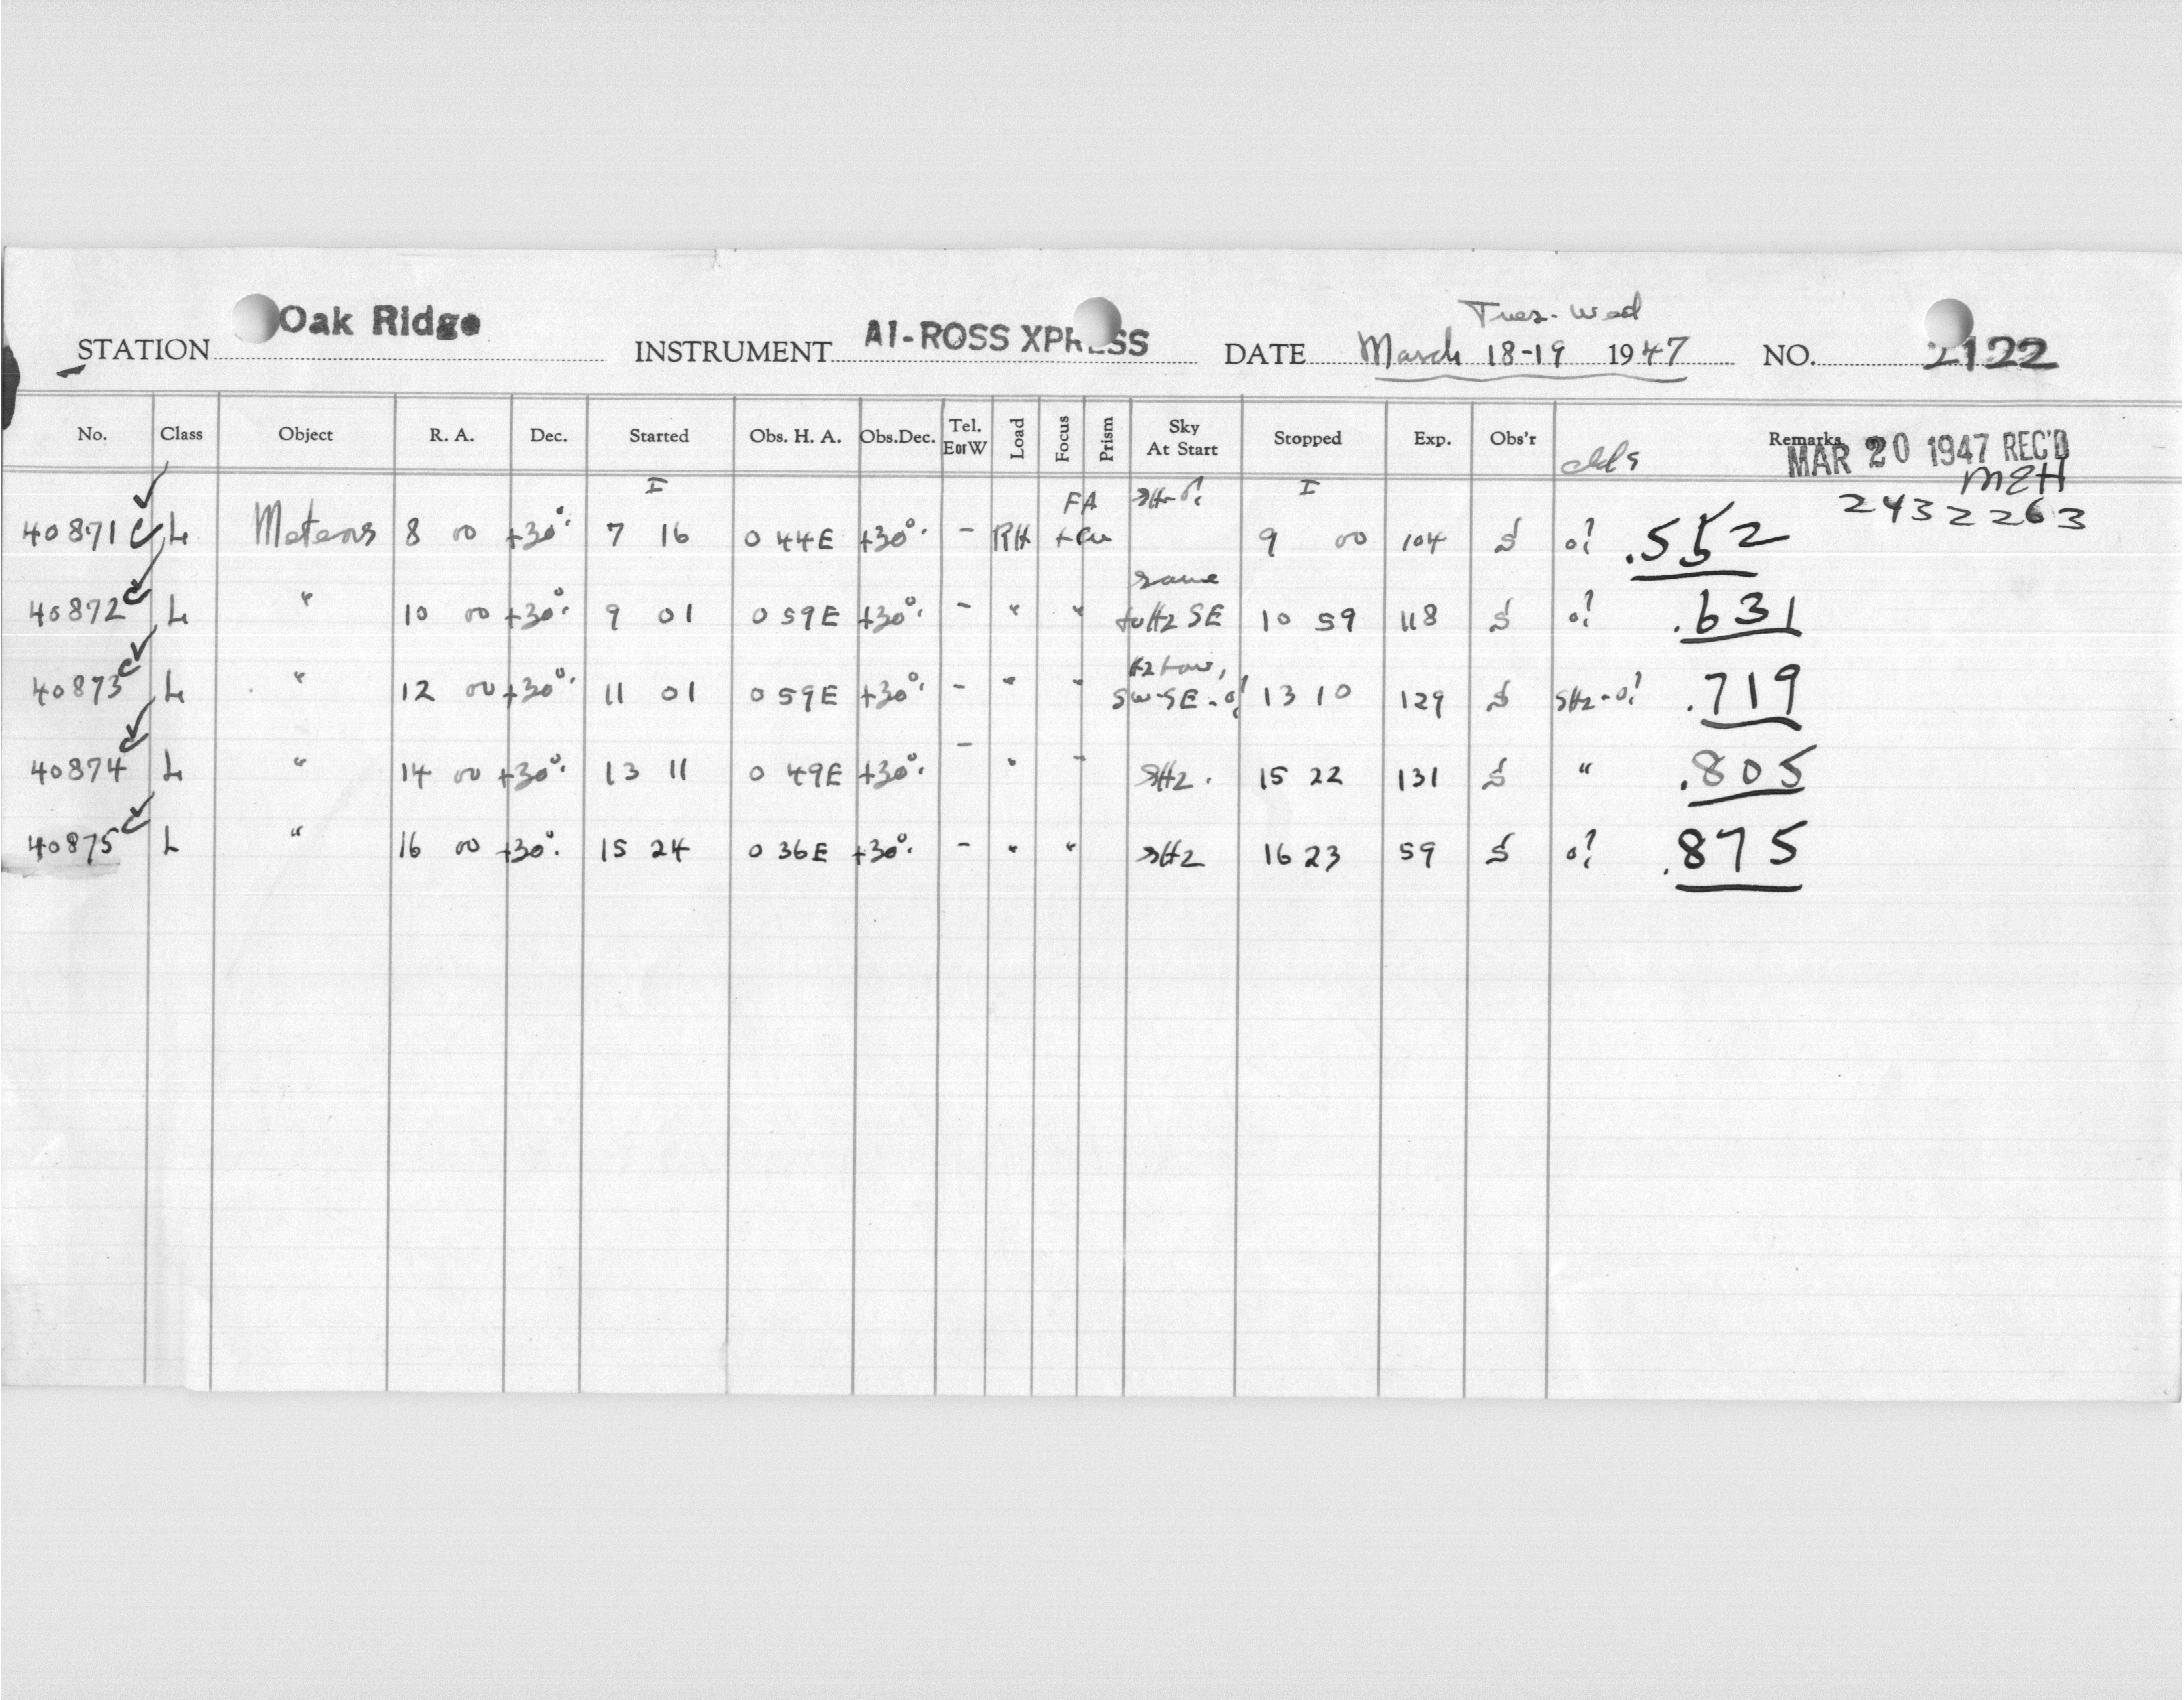 Tues.-Wed
STATION Oak Ridge INSTRUMENT AI-ROSS XPRESS DATE March 18-19 1947 NO. 2122
No. Class Object R. A. Dec. Started Obs. H. A. Obs.Dec. Tel. EorW Load Focus Prism Sky At Start Stopped Exp. Obs'r Remarks
clds MAR 20 1947 REC'D
MEH
2432263
I FA I
40871 L Meteors 8 00 +30° 7 16 0 44E +30° - RH 9 00 104 S o? .552
same
40872 L " 10 00 +30° 9 01 0 59E +30° - " " to Hz SE 10 59 118 S o? .631
Hz low,
40873 L " 12 00 +30° 11 01 0 59E +30° - " " SW-SE-o? 13 10 129 S SHz-o? .719
40874 L " 14 00 +30° 13 11 0 49E +30° - " - SHz. 15 22 131 S " .805
40875 L " 16 00 +30° 15 24 0 36E +30° - " " SHz 16 23 59 S o? .875